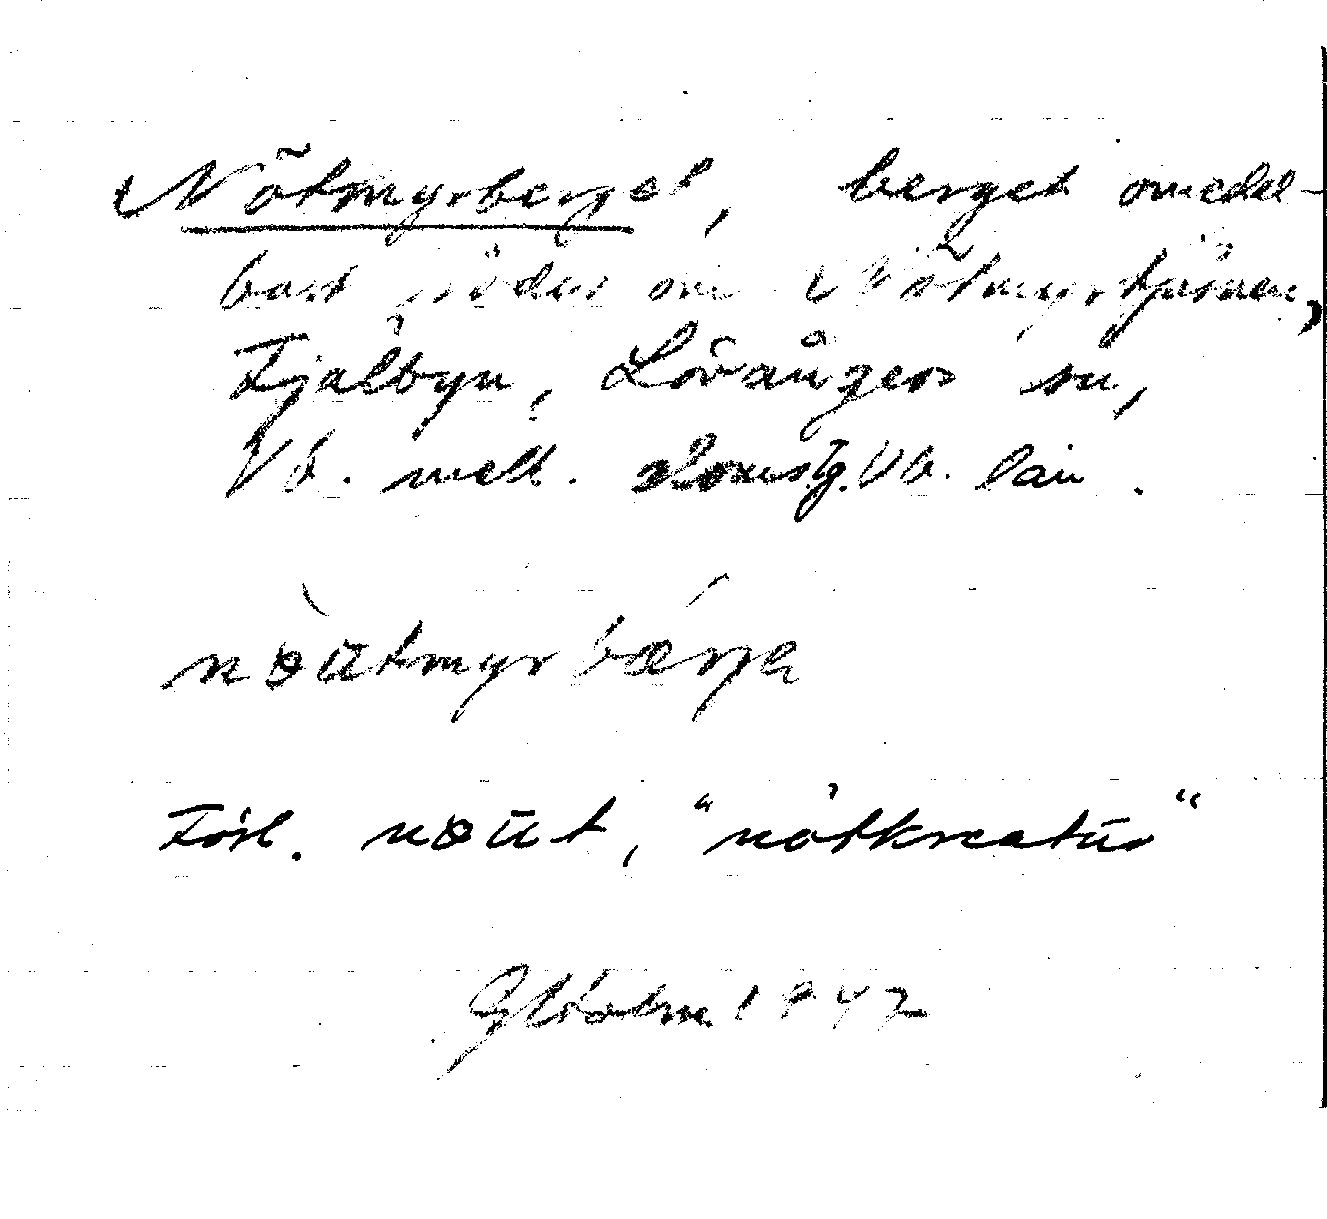 Nötmyrberget, berget omedel-
bart söder om Nötmyrtjärnen,
Fjälbyn, Lövångers sn,
Vb. mell. domsg. Vb. län.
nøütmyrbærje
Förl. nøüt, "nötkreatur"
GHolm 1947